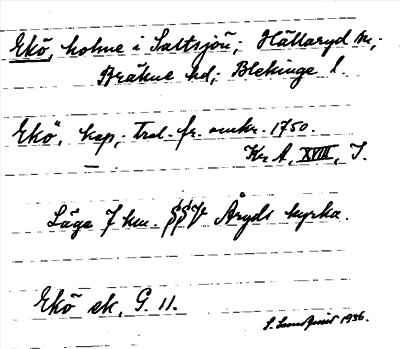 Ekö, holme i Saltsjön; Hällaryd sn;
Bräkne hd; Blekinge l.
Ekö, kap; trol. fr. omkr. 1750.
Kr A, XVIII, I.
Läge 7 km. SSV Åryds kyrka.
Ekö ek, G. 11.
S. Lundqvist 1936.